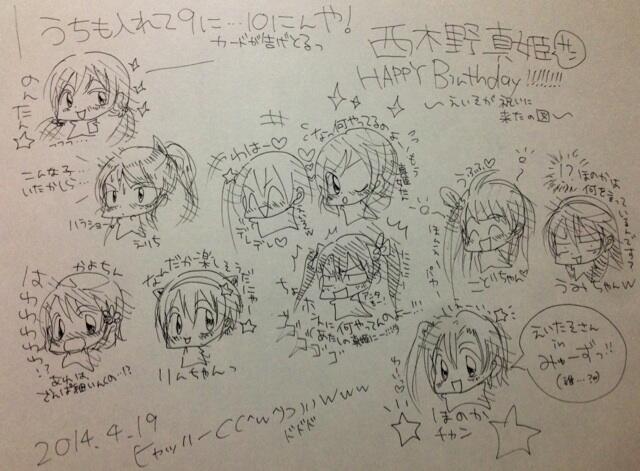 うちも入れて9に…10にんや!
カードが告げとるっ
西木野真姫サン
HAPPY Birthday!!!!!!!
〜えいたそが祝いに
来たの図〜
のんたん☆
こんな子…
いたかしら…
ハラショー
えりち
きゃはー♡
デレデレ♡
なっ何やってるのよ
もう
うふふ♡
ほんわ
ことりちゃん
!?ほのかは
何を言っているんですっ
うみちゃんw
かよちん
はわわわわわ!?
あれは
なんだか楽しそうだにゃ
りんちゃんっ
ちょ
ホントに何やってんのよ
あたしの真姫に…!!!
ゴゴゴ
ほのか
チャン
えいたそさん
in
みゅーずっ!!
(誰…?)
2014.4.19
ヒャッハーC(^w^)つ))www
ドドド